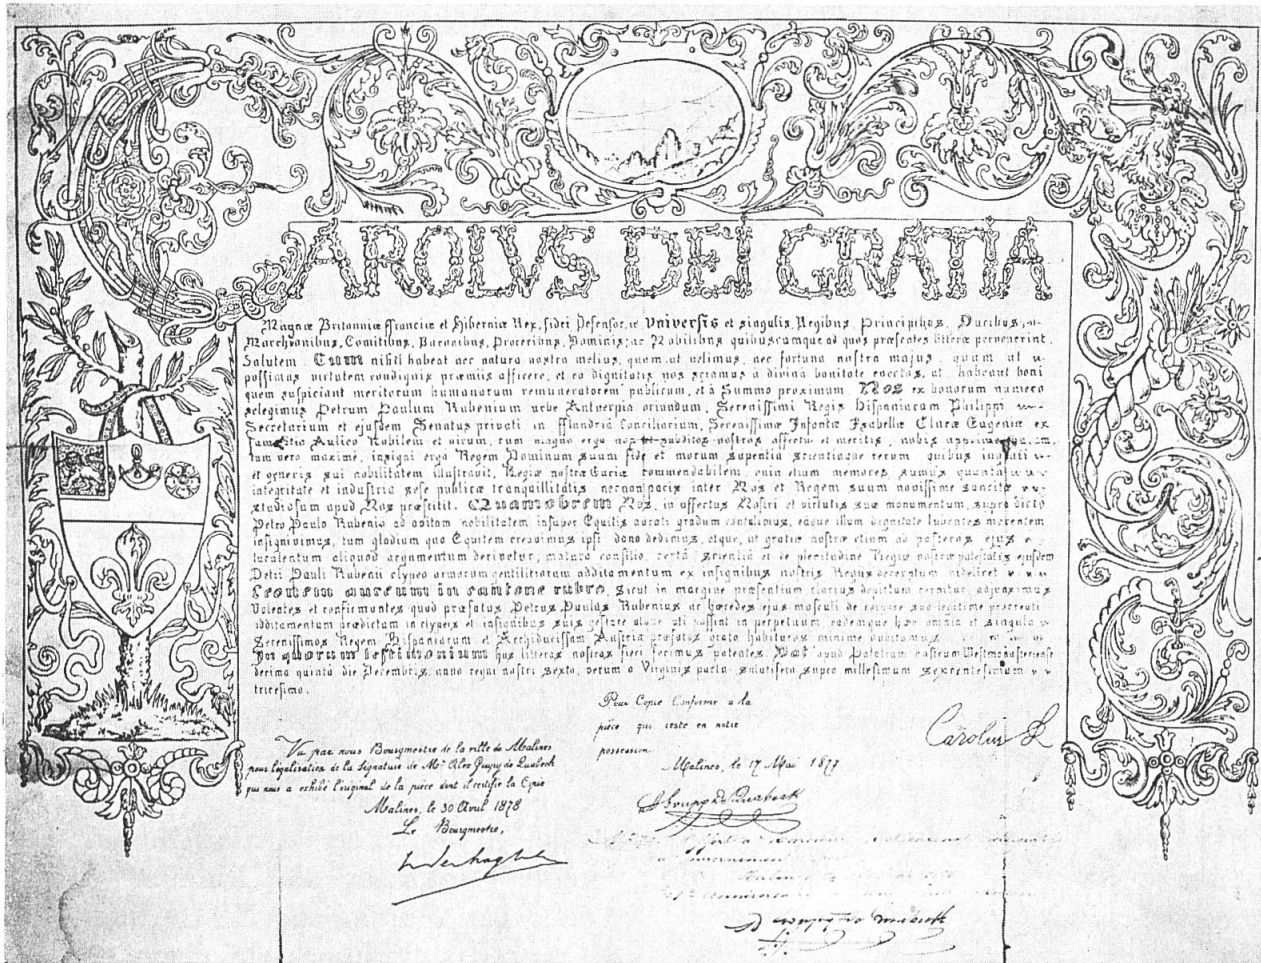 CAROLVS DEI GRATIA
Magnæ Britanniæ Franciæ et Hiberniæ Rex, fidei Defensor, Universis et singulis, Regibus, Principibus, Ducibus,
Marchionibus, Comitibus, Baronibus, Proceribus, Dominis, ac Nobilibus quibuscumque ad quos præsentes litteræ pervenerint
Salutem. Cum nihil habeat aec natura nostra melius, quam ut velimus, nec fortuna nostra majus, quam ut
possimus virtutem condignis præmiis afficere, et eo dignitatis nos sciamus a divina bonitate evectos, ut habeant boni
quem suspiciant meritorum humanorum remuneratorem publicum, et à Summo proximum. Nos ex bonorum numero
selegimus Petrum Paulum Rubenium urbe Antverpia oriundum, Serenissimi Regis Hispaniarum Philippi
Secretarium et ejusdem Senatus privati in fflandria Conciliarium, Serenissimæ Infantæ Isabellæ Claræ Eugeniæ ex
Aulico Nobilem et virum, cum magno erga nos et subditos nostros affectu et meritis, nobis
tum vero maxime, insigni erga Regem Dominum suum fide et morum sapentia scientiaque rerum quibus
et generis sui nobilitatem illustravit, Regiæ nostræ Curiæ commendabilem, enim etiam memores sumus quanta
integritate et industria sese publicæ tranquillitatis necnon pacis inter Nos et Regem suum novissime sancitæ
studiosum apud Nos præstitit. Quamobrem Nos, in affectus Nostri et virtutis suæ monumentum, supra dicto
Petro Paulo Rubenio ad avitam nobilitatem insuper Equitis aurati gradum contulimus, eaque illum dignitate lubentes merentem
insignivimus, tum gladium quo Equitem creavimus ipsi dono dedimus, atque, ut gratiæ nostræ etiam ad posteros ejus
luculentum aliquod argumentum derivetur, maturo consilio, certâ scientiâ et de plenitudine Regiæ nostræ potestatis ejusdem
Petri Pauli Rubenii clypeo armorum gentilitiorum additamentum ex insignibus nostris Regiis decerptum videlicet
Leonem aureum in cantone rubro, sicut in margine præsentium clarius depictum cernitur, adjunximus
Volentes et confirmantes quod præfatus Petrus Paulus Rubenius ac hæredes ejus masculi de corpore suo legitime procreati
additamentum prædictum in clypeis et insignibus suis gestare atque uti possint in perpetuum eademque hæc omnia et singula
Serenissimos Regem Hispaniarum et Archiducissam Austriæ præfatos grato habituros minime dubitamus
In quorum testimonium has litteras nostras fieri fecimus patentes. Dat. apud Palatium nostrum Westmonasteriense
decima quinta die Decembris, anno regni nostri sexto, verum a Virginis partu salutifero supra millesimum sexcentesimum
tricesimo.
Pour Copie Conforme à la
pièce qui reste en notre
possession.
Malines, le 17 Mai 1877
Carolus R
Vu par nous Bourgmestre de la ville de Malines
pour légalisation de la signature de Mr Alex de Quabeck
qui nous a exhibé l'original de la pièce dont il certifie la Copie
Malines, le 30 Avril 1878
Le Bourgmestre,